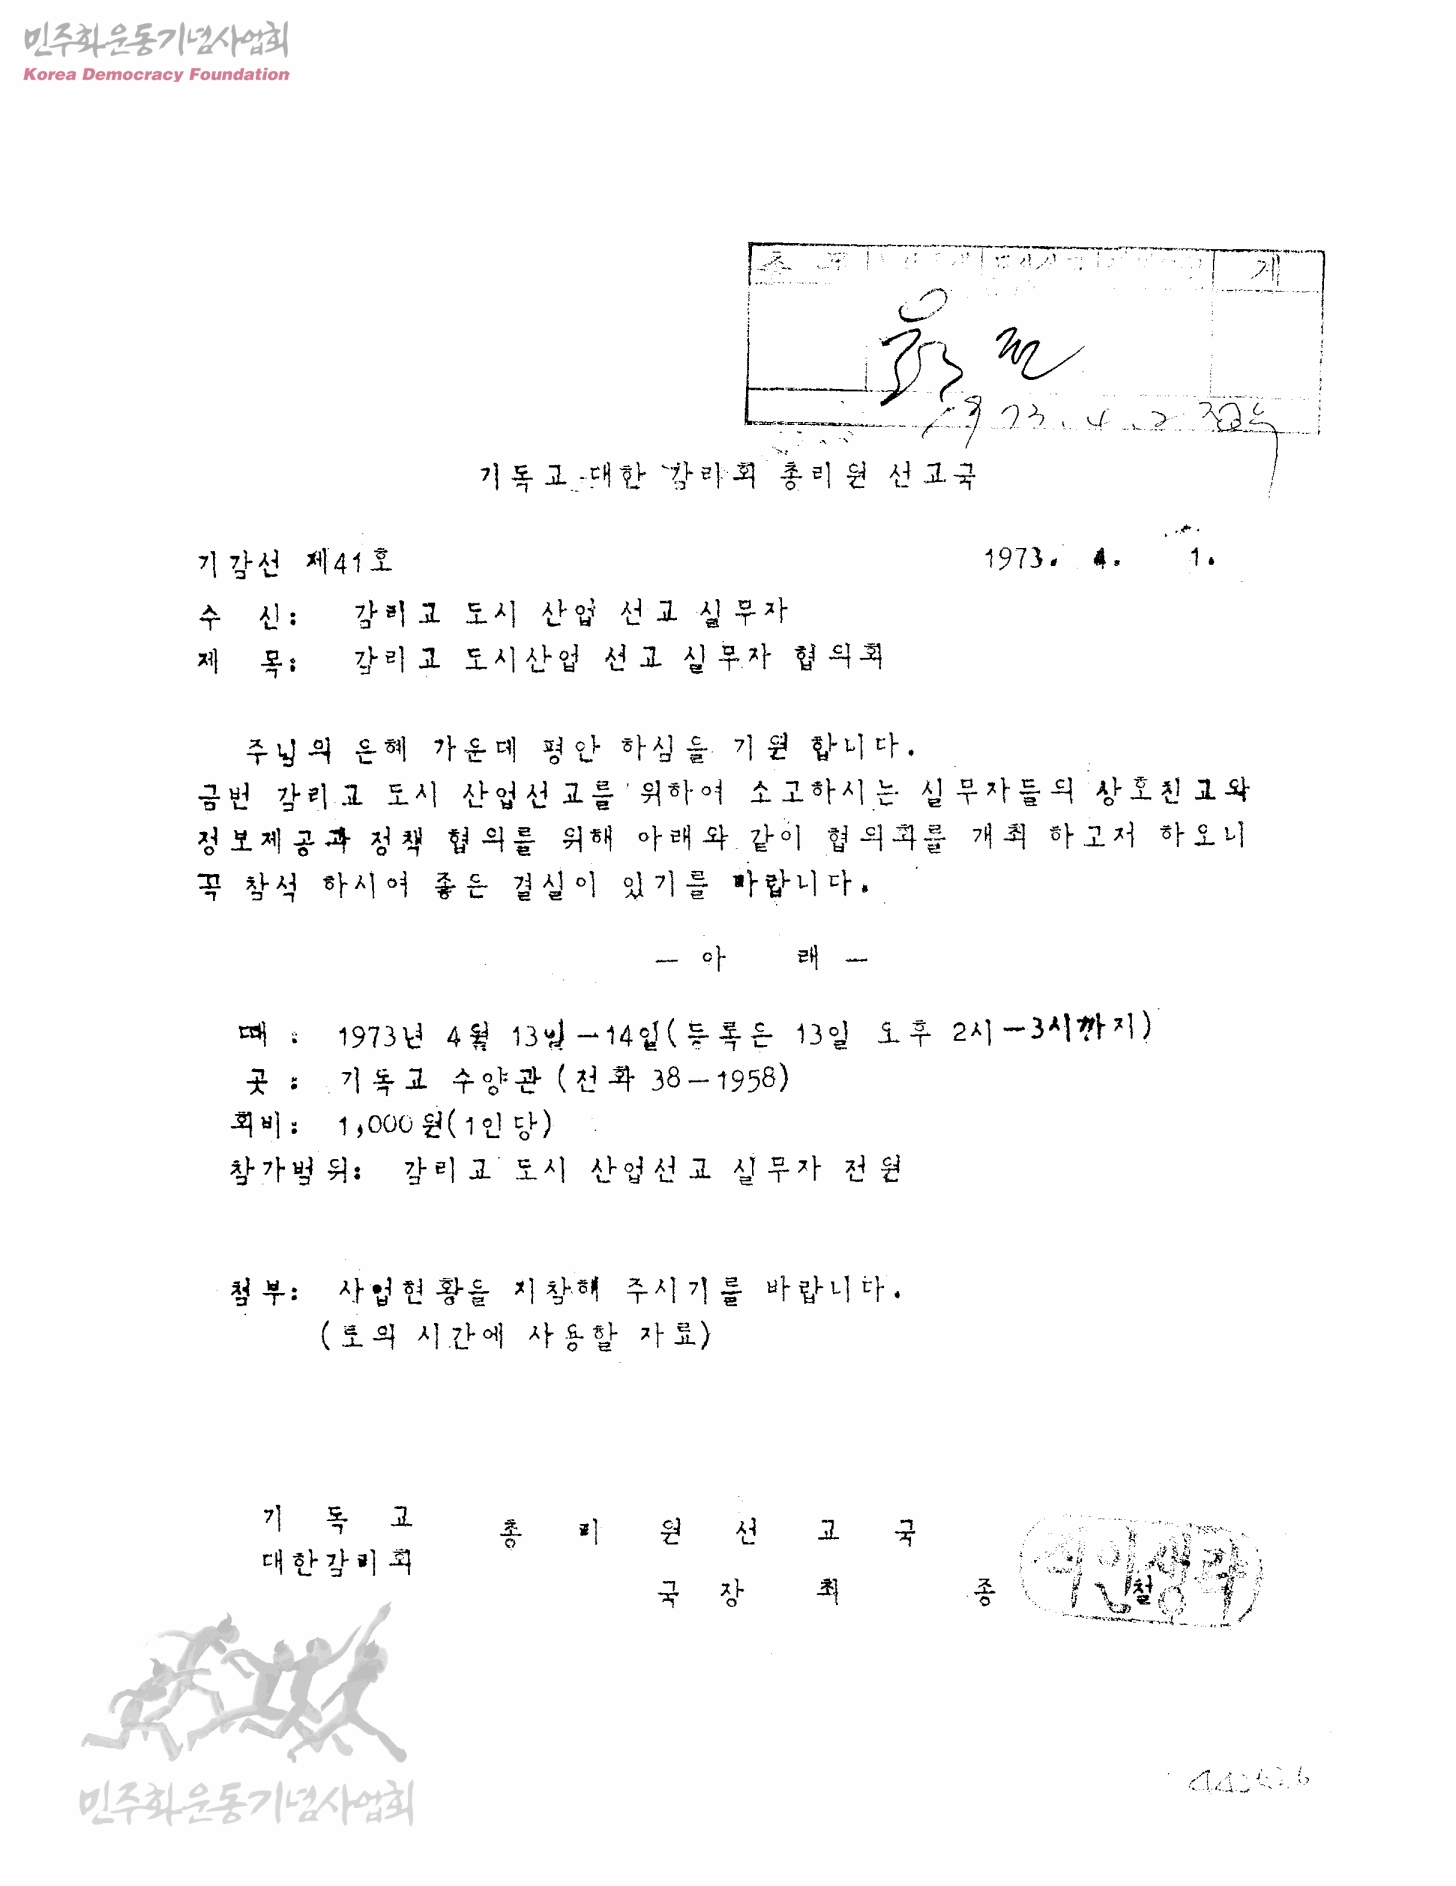 민주화운동기념사업회
Korea Democracy Foundation
총 계
1973.4.2 접수
기독교 대한 감리회 총리원 선교국
기감선 제41호 1973. 4. 1.
수 신: 감리교 도시 산업 선교 실무자
제 목: 감리교 도시산업 선교 실무자 협의회
주님의 은혜 가운데 평안 하심을 기원 합니다.
금번 감리교 도시 산업선교를 위하여 소고하시는 실무자들의 상호친교와
정보제공과 정책 협의를 위해 아래와 같이 협의회를 개최 하고저 하오니
꼭 참석 하시여 좋은 결실이 있기를 바랍니다.
— 아 래 —
때 : 1973년 4월 13일—14일(등록은 13일 오후 2시—3시까지)
곳 : 기독교 수양관 (전화 38—1958)
회비: 1,000원(1인당)
참가범위: 감리교 도시 산업선교 실무자 전원
첨부: 사업현황을 지참해 주시기를 바랍니다.
(토의 시간에 사용할 자료)
기 독 교
대한감리회
총 리 원 선 교 국
국 장 최 종 철
직인생략
민주화운동기념사업회